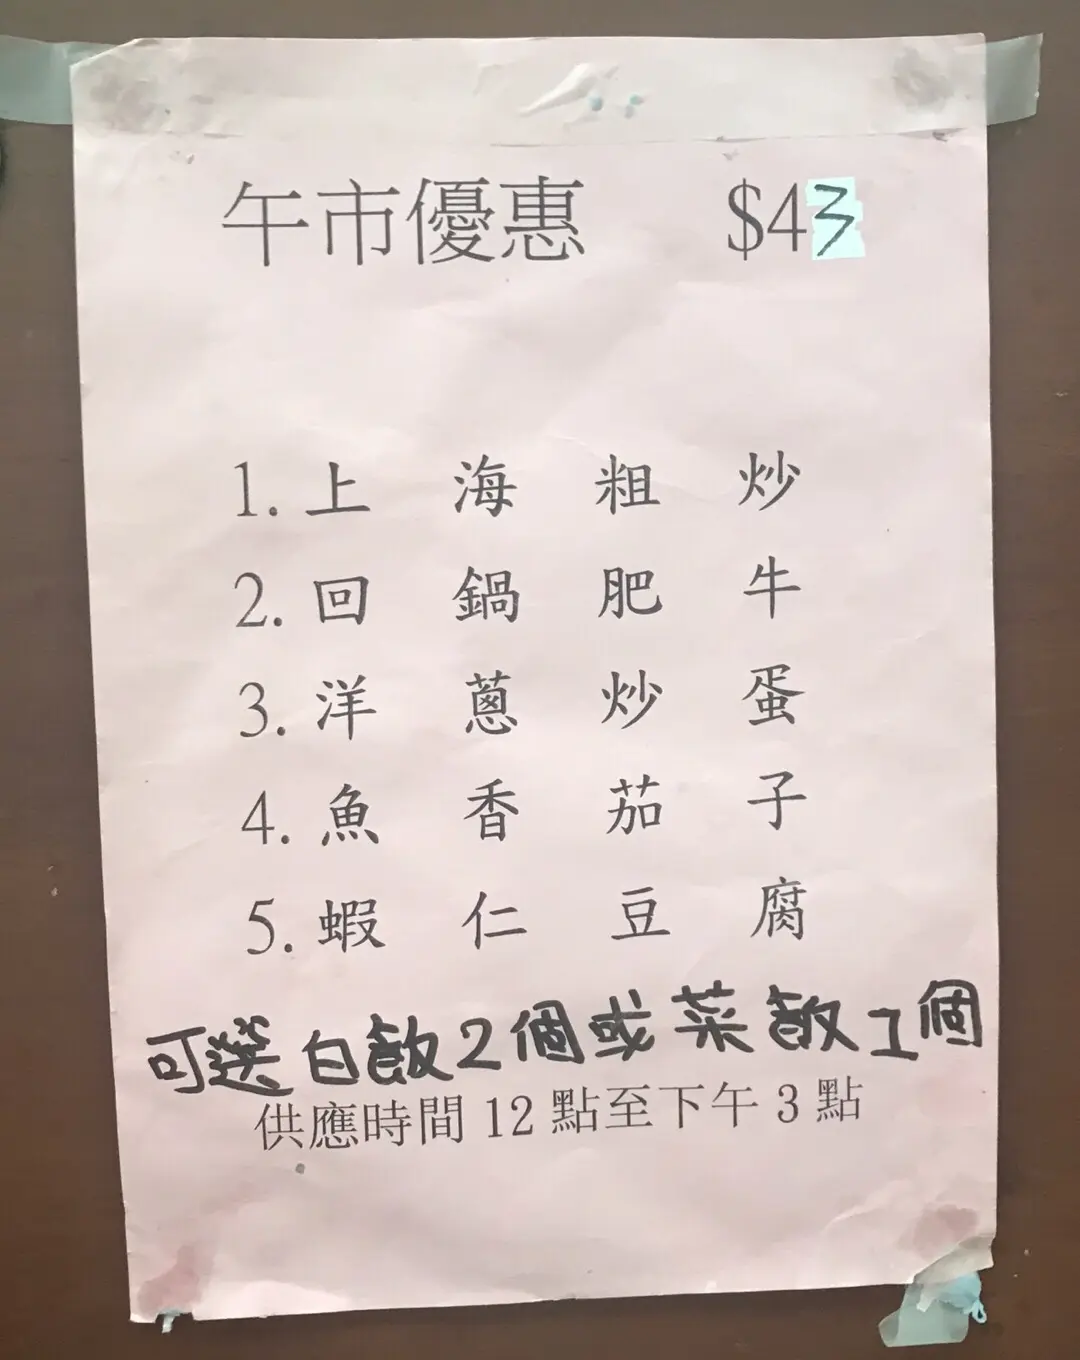 午市優惠 $43
1. 上海粗炒
2. 回鍋肥牛
3. 洋蔥炒蛋
4. 魚香茄子
5. 蝦仁豆腐
可選白飯2個或菜飯1個
供應時間 12 點至下午 3 點